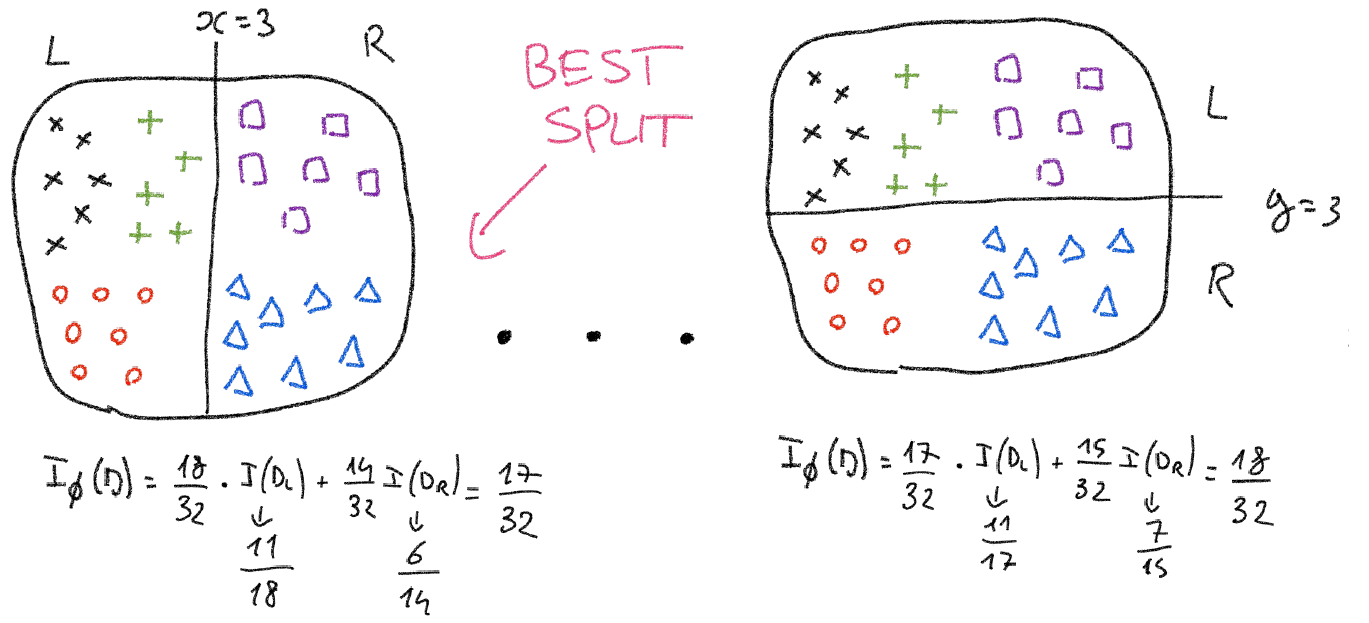 x=3
L
R
BEST
SPLIT
L
y=3
R
I∅(D) = 18/32 · I(DL) + 14/32 I(DR) = 17/32
↓ 11/18
↓ 6/14
I∅(D) = 17/32 · I(DL) + 15/32 I(DR) = 18/32
↓ 11/17
↓ 7/15